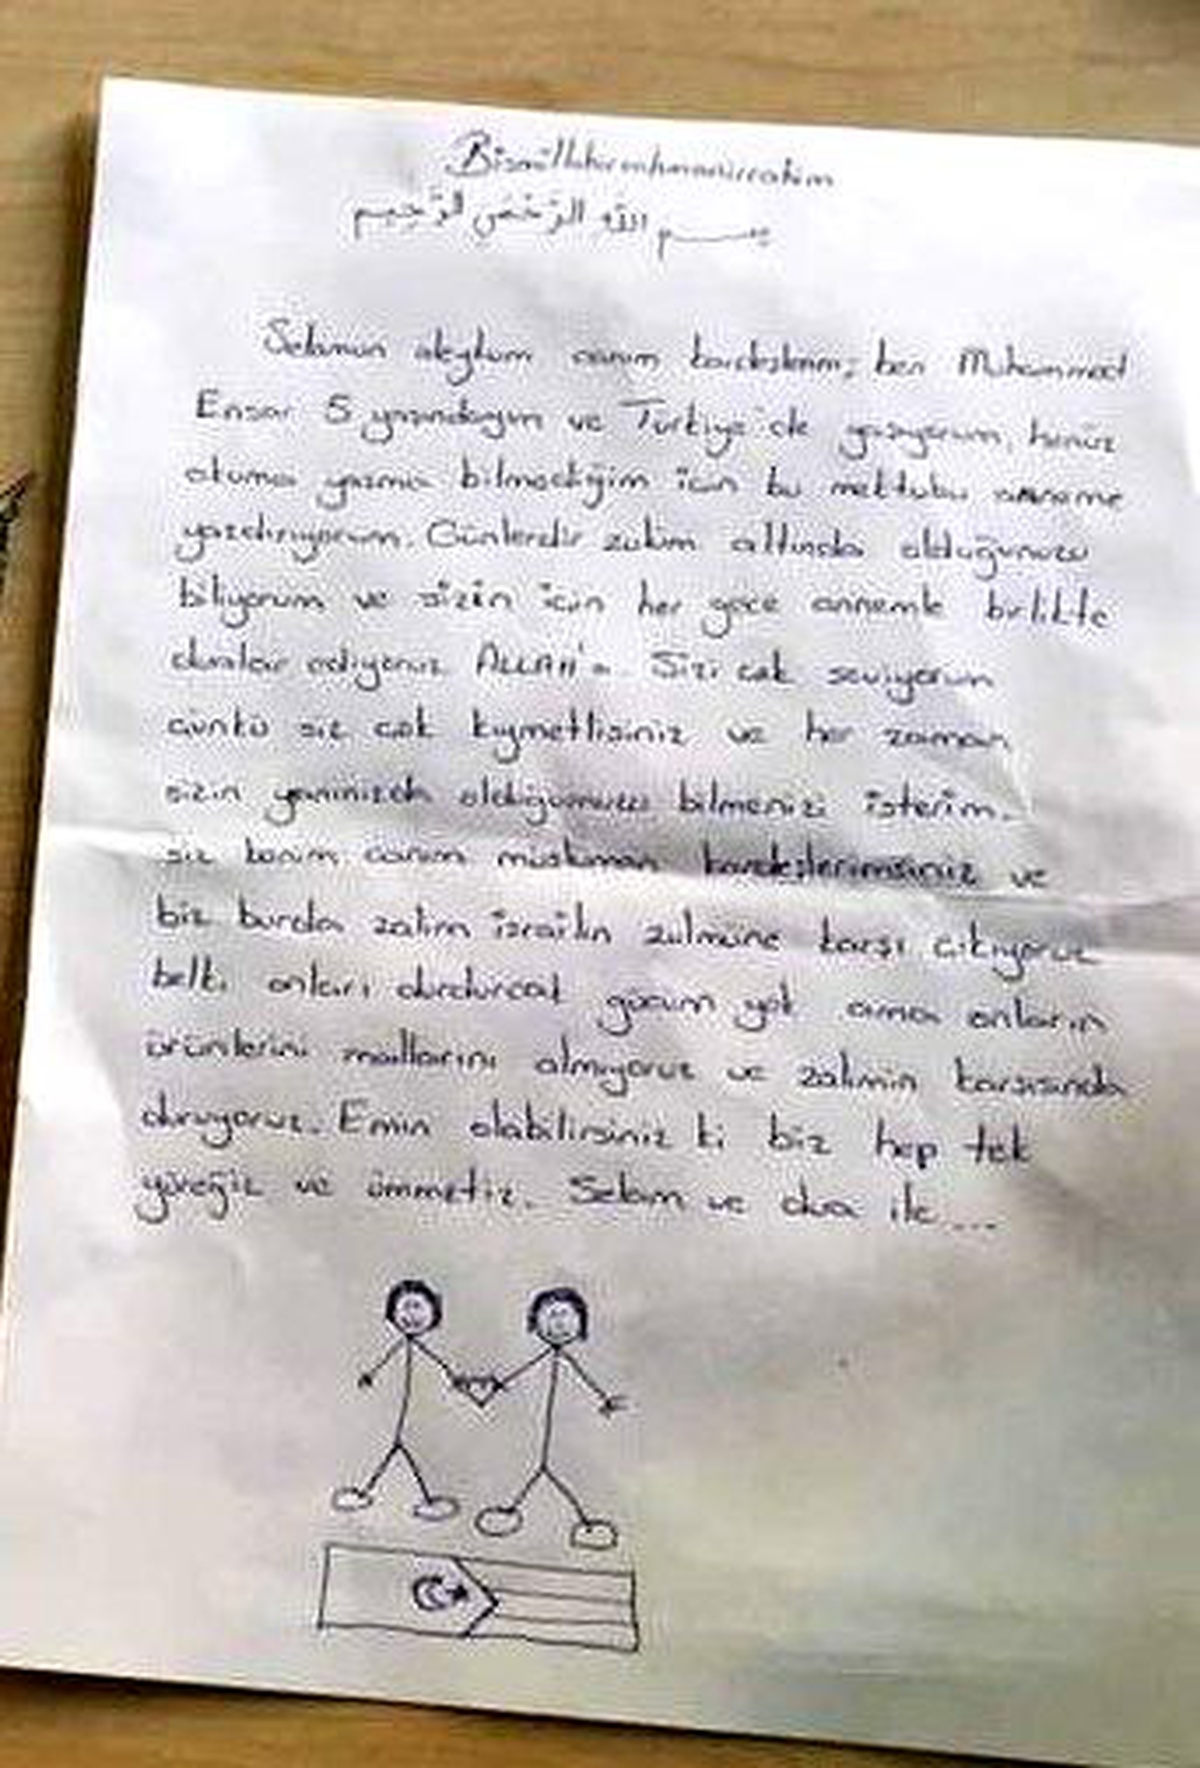 Bismillahirrahmanirrahim
بسم الله الرَّحْمن الرَّحِيم
Selamun aleyküm canım kardeşlerim; ben Muhammed
Ensar 5 yaşındayım ve Türkiye'de yaşıyorum, henüz
okuma yazma bilmediğim için bu mektubu anneme
yazdırıyorum. Günlerdir zulüm altında olduğunuzu
biliyorum ve sizin için her gece annemle birlikte
dualar ediyoruz ALLAH'a. Sizi çok seviyorum
çünkü siz çok kıymetlisiniz ve her zaman
sizin yanınızda olduğumuzu bilmenizi isterim.
siz benim canım müslüman kardeşlerimsiniz ve
biz burda zalim israilin zulmüne karşı çıkıyoruz
belki onları durduracak gücüm yok ama onların
ürünlerini mallarını almıyoruz ve zalimin karşısında
duruyoruz. Emin olabilirsiniz ki biz hep tek
yüreğiz ve ümmetiz. Selam ve dua ile....